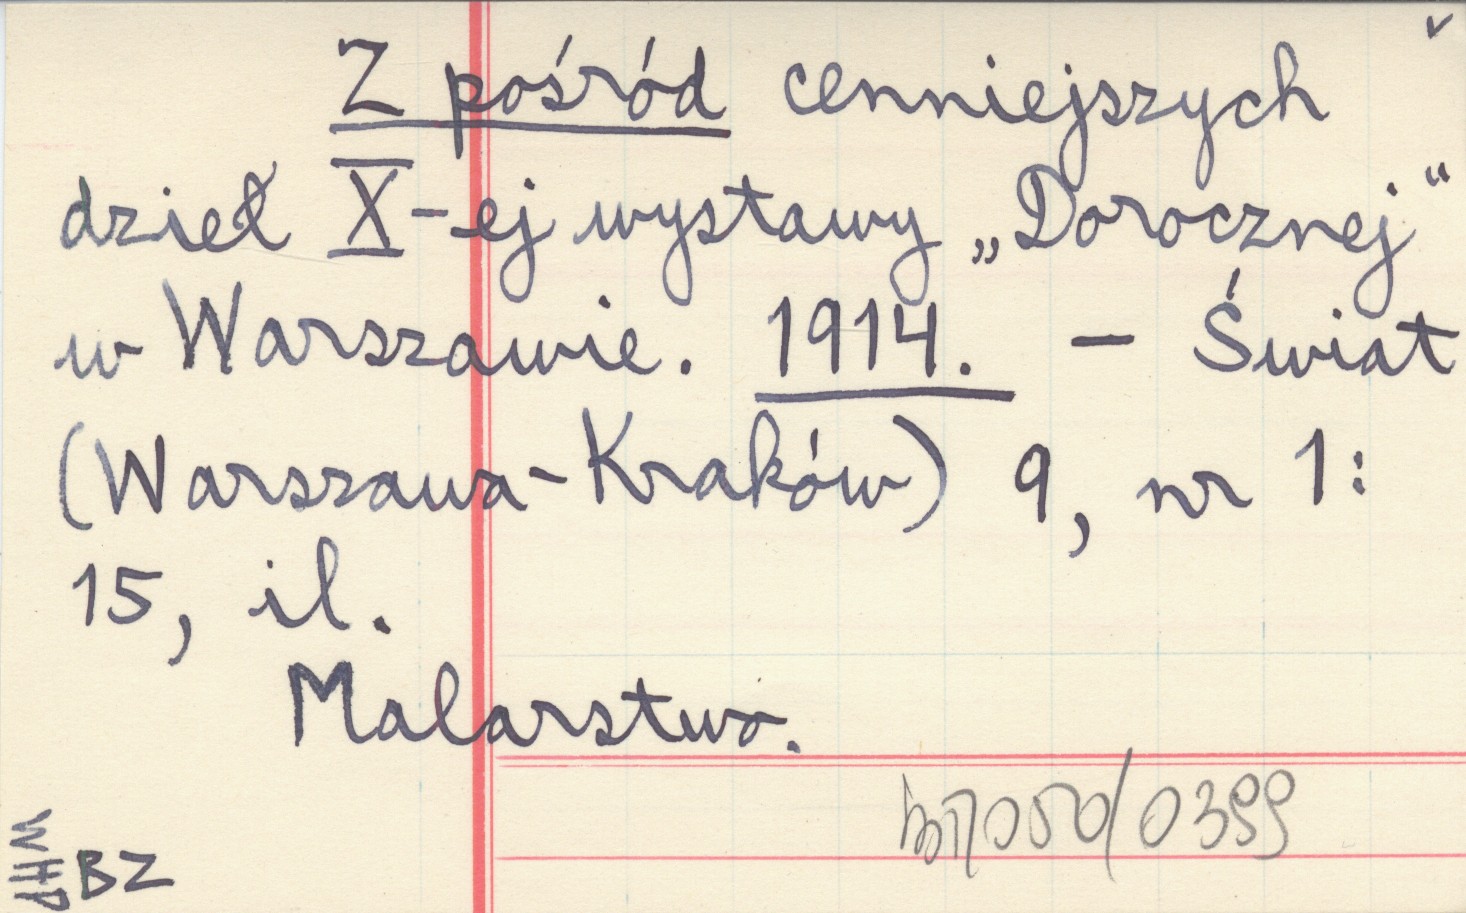 Z pośród cenniejszych
dzieł X-ej wystawy „Dorocznej"
w Warszawie. 1914. - Świat
(Warszawa-Kraków) 9, nr 1:
15, il.
Malarstwo.
/0399
WHP
BZ